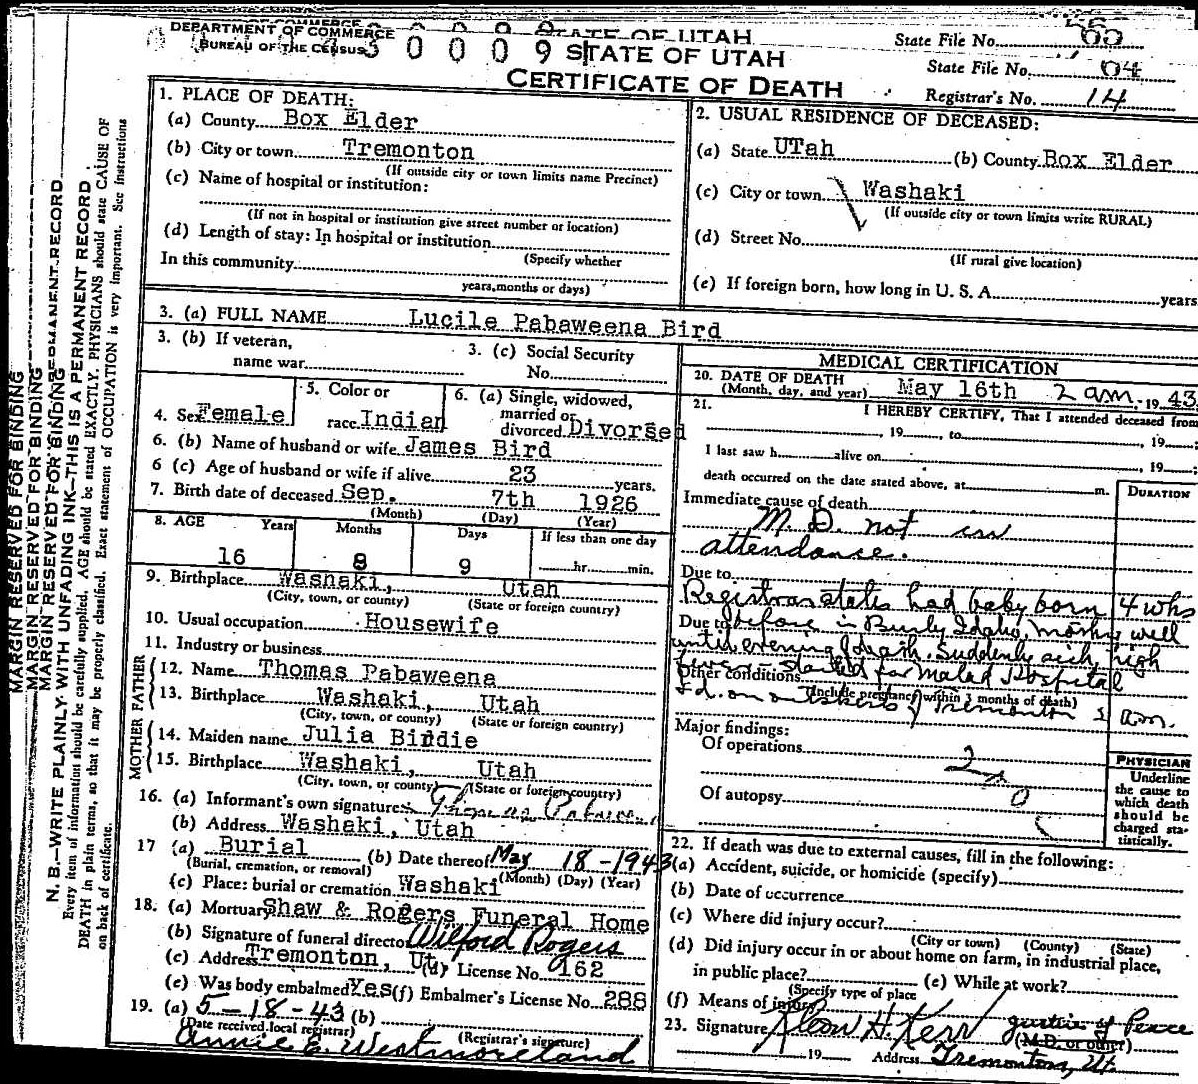 DEPARTMENT OF COMMERCE
BUREAU OF THE CENSUS
STATE OF UTAH
STATE OF UTAH
CERTIFICATE OF DEATH
State File No. 65
State File No. 64
Registrar's No. 14
MARGIN RESERVED FOR BINDING
MARGIN RESERVED FOR BINDING
MARGIN RESERVED FOR BINDING
N. B.—WRITE PLAINLY WITH UNFADING INK—THIS IS A PERMANENT RECORD
Every item of information should be carefully supplied. AGE should be stated EXACTLY. PHYSICIANS should state CAUSE OF
DEATH in plain terms, so that it may be properly classified. Exact statement of OCCUPATION is very important. See instructions
on back of certificate.
1. PLACE OF DEATH:
(a) County Box Elder
(b) City or town Tremonton
(If outside city or town limits name Precinct)
(c) Name of hospital or institution:
(If not in hospital or institution give street number or location)
(d) Length of stay: In hospital or institution
(Specify whether
In this community
years, months or days)
2. USUAL RESIDENCE OF DECEASED:
(a) State UTah (b) County Box Elder
(c) City or town Washaki
(If outside city or town limits write RURAL)
(d) Street No.
(If rural give location)
(e) If foreign born, how long in U. S. A. years
3. (a) FULL NAME Lucile Pabaweena Bird
3. (b) If veteran,
name war
3. (c) Social Security
No.
4. Sex Female
5. Color or
race Indian
6. (a) Single, widowed,
married or
divorced Divorsed
6. (b) Name of husband or wife James Bird
6 (c) Age of husband or wife if alive 23 years.
7. Birth date of deceased Sep. 7th 1926
(Month) (Day) (Year)
8. AGE Years Months Days If less than one day
16 8 9 hr. min.
9. Birthplace Washaki, Utah
(City, town, or county) (State or foreign country)
10. Usual occupation Housewife
11. Industry or business
FATHER
12. Name Thomas Pabaweena
13. Birthplace Washaki, Utah
(City, town, or county) (State or foreign country)
MOTHER
14. Maiden name Julia Birdie
15. Birthplace Washaki, Utah
(City, town, or county) (State or foreign country)
16. (a) Informant's own signature Thomas
(b) Address Washaki, Utah
17 (a) Burial (b) Date thereof May 18-1943
(Burial, cremation, or removal) (Month) (Day) (Year)
(c) Place: burial or cremation Washaki
18. (a) Mortuary Shaw & Rogers Funeral Home
(b) Signature of funeral director Wilford Rogers
(c) Address Tremonton, Ut. (d) License No. 162
(e) Was body embalmed Yes (f) Embalmer's License No. 288
19. (a) 5-18-43 (b)
(Date received local registrar) (Registrar's signature)
Annie E. Westmoreland
MEDICAL CERTIFICATION
20. DATE OF DEATH
(Month, day, and year) May 16th 2 am. 1943
21. I HEREBY CERTIFY, That I attended deceased from
, 19 , to , 19 ;
I last saw h alive on , 19 ;
death occurred on the date stated above, at m.
DURATION
Immediate cause of death
M. D. not in
attendance.
Due to
Registrar states had baby born 4 wks
Due to before in Burly Idaho, Mother well
until evening death. Suddenly sick, high
fever - started for Malad Hospital
Other conditions
(Include pregnancy within 3 months of death)
Id. on outskirts of Tremonton 2 a.m.
Major findings:
Of operations
Of autopsy
PHYSICIAN
Underline
the cause to
which death
should be
charged sta-
tistically.
22. If death was due to external causes, fill in the following:
(a) Accident, suicide, or homicide (specify)
(b) Date of occurrence
(c) Where did injury occur?
(City or town) (County) (State)
(d) Did injury occur in or about home on farm, in industrial place,
in public place? (e) While at work?
(Specify type of place
(f) Means of injury
23. Signature H. Kerr Justice of Peace
(M.D. or other)
19 Address Tremonton, Ut.